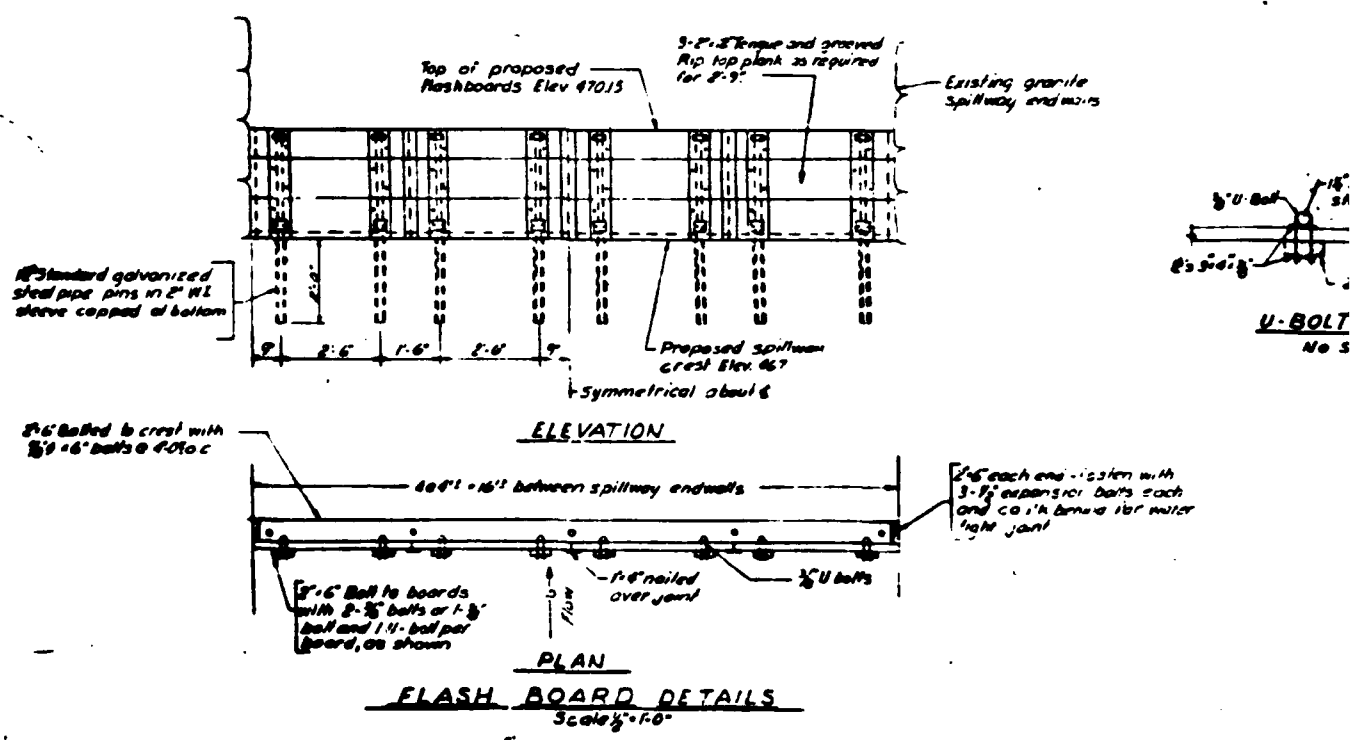 Top of proposed
flashboards Elev 470.15
Tongue and grooved
Rip top plank as required
for 2'-9"
Existing granite
spillway endwalls
Standard galvanized
steel pipe pins in 2" W.I.
sleeve capped at bottom
9"
2'-6"
1'-6"
2'-6"
9"
Proposed spillway
crest Elev. 467
Symmetrical about
ELEVATION
U-Bolt
U-BOLT
No S
Bolted to crest with
bolts @
between spillway endwalls
each end fasten with
expansion bolts each
and behind for water
tight joint
2"x6" Bolt to boards
with bolts or
bolt and bolt per
board, as shown
Flow
1"x4" nailed
over joint
U bolts
PLAN
FLASH BOARD DETAILS
Scale 1'-0"